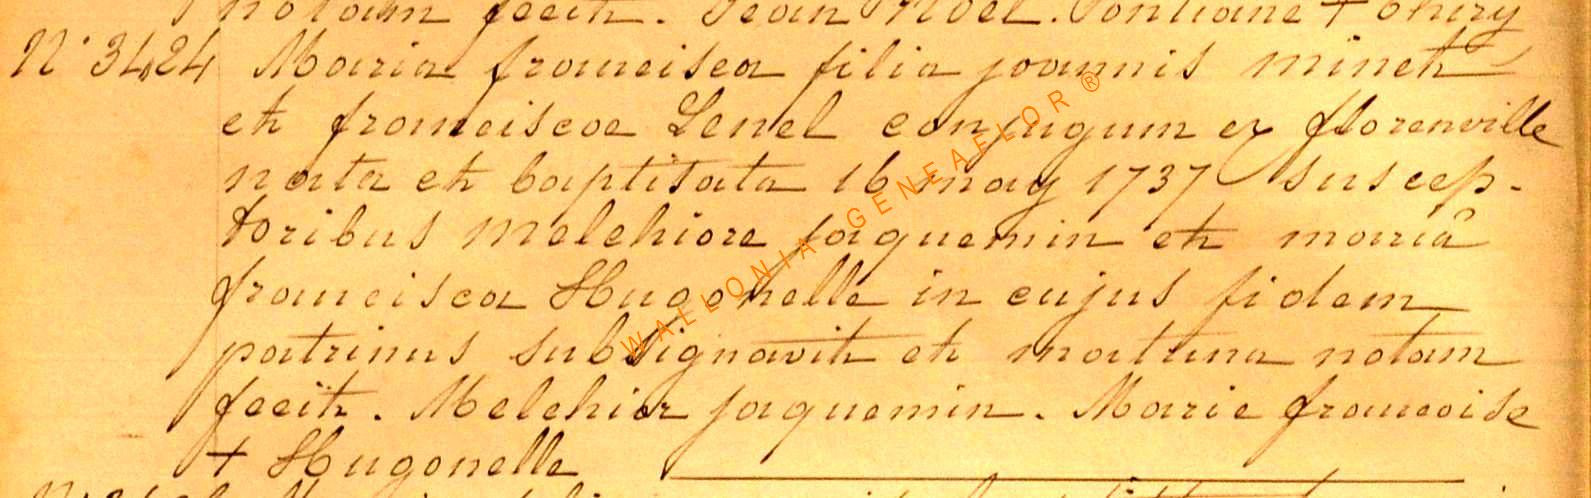 notam fecit. Jean Noël. Pontiane + thiry
N° 3424 Maria francisca filia joannis minet
et franciscae Lenel conjugum ex florenville
nata et baptisata 16 may 1737 suscep-
toribus melchiore jaquemin et mariâ
francisca Hugonelle in cujus fidem
patrinus subsignavit et matrina notam
fecit. Melchior jaquemin. Marie francoise
+ Hugonelle
WALLONIA GENEAFLOR ®